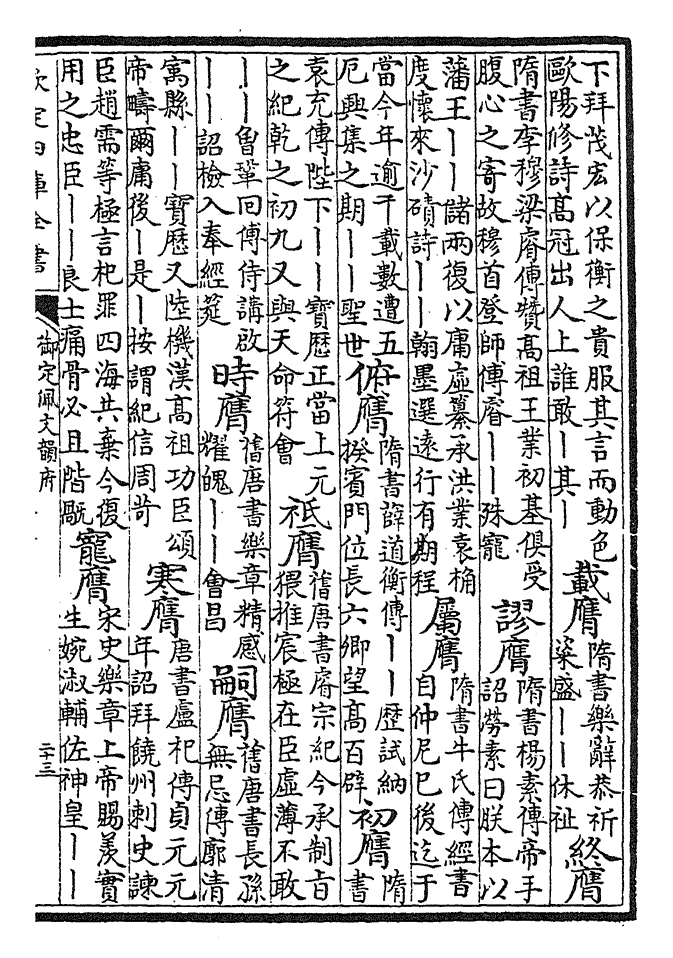 下拜茂宏以保衡之貴服其言而動色
歐陽修詩高冠出人上誰敢丨其丨
載膺
隋書樂辭恭祈
粢盛丨丨休祉
終膺
隋書李穆梁睿傳贊高祖王業初基俱受
腹心之寄故穆首登師傅睿丨丨殊寵
謬膺
隋書楊素傳帝手
詔勞素曰朕本以
藩王丨丨儲兩復以庸虛纂承洪業袁桷
度懷來沙磧詩丨丨翰墨選遠行有期程
屬膺
隋書牛氏傳經書
自仲尼已後迄于
當今年逾千載數遭五
厄興集之期丨丨聖世
俯膺
隋書薛道衡傳丨丨歷試納
揆賓門位長六卿望高百辟
初膺
隋
書
袁充傳陛下丨丨寶歷正當上元
之紀乾之初九又與天命符會
祗膺
舊唐書睿宗紀今承制旨
猥推宸極在臣虛薄不敢
丨丨魯鞏回傳侍講啟
丨丨詔檢入奉經筵
時膺
舊唐書樂章精感
耀魄丨丨會昌
嗣膺
舊唐書長孫
無忌傳廓清
寓縣丨丨寶歷又陸機漢高祖功臣頌
帝疇爾庸後丨是丨按謂紀信周苛
寒膺
唐書盧杞傳貞元元
年詔拜饒州刺史諫
臣趙需等極言杞罪四海共棄今復
用之忠臣丨丨良士痛骨必且階厲
寵膺
宋史樂章上帝賜羨實
生婉淑輔佐神皇丨丨
欽定四庫全書
御定佩文韻府
二十三